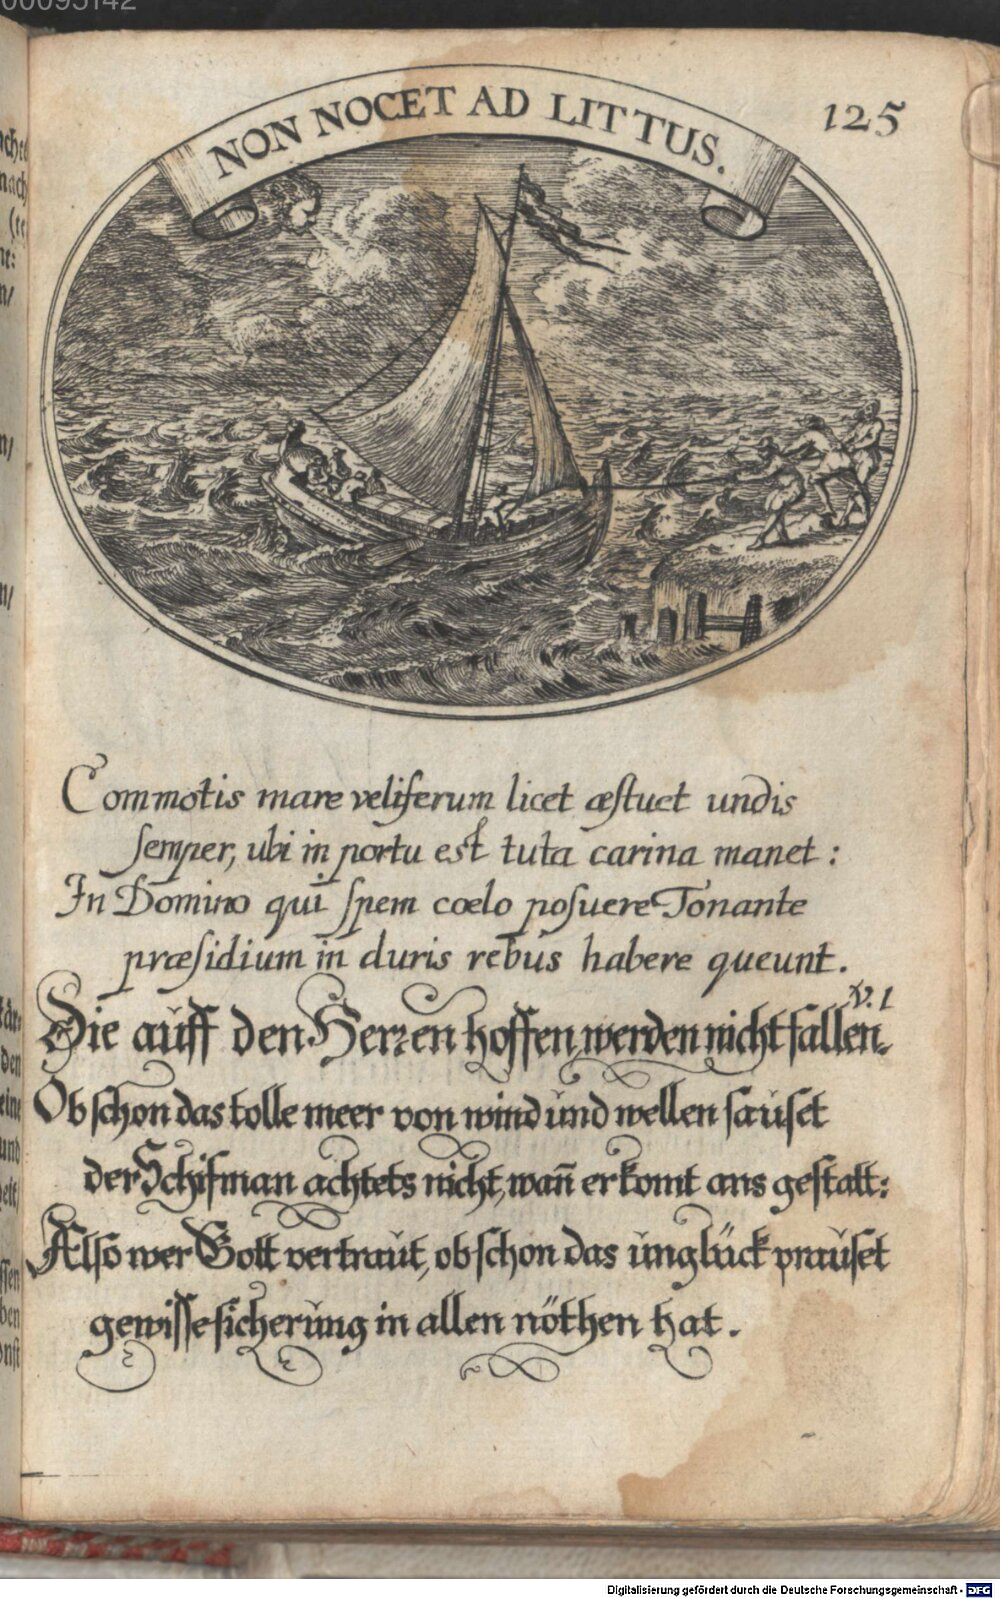 00095142
NON NOCET AD LITTUS.
125
Commotis mare veliferum licet æstuet undis
semper, ubi in portu est tuta carina manet:
In Domino qui spem coelo posuere Tonante
præsidium in duris rebus habere queunt.
V. 1
Die auff den Herzen hoffen, werden nicht fallen.
Ob schon das tolle meer von wind und wellen sauset
der Schifman achtets nicht, wañ er komt ans gestatt:
Also wer Gott vertraut, ob schon das unglück prauset
gewisse sicherung in allen nöthen hat.
Digitalisierung gefördert durch die Deutsche Forschungsgemeinschaft - DFG